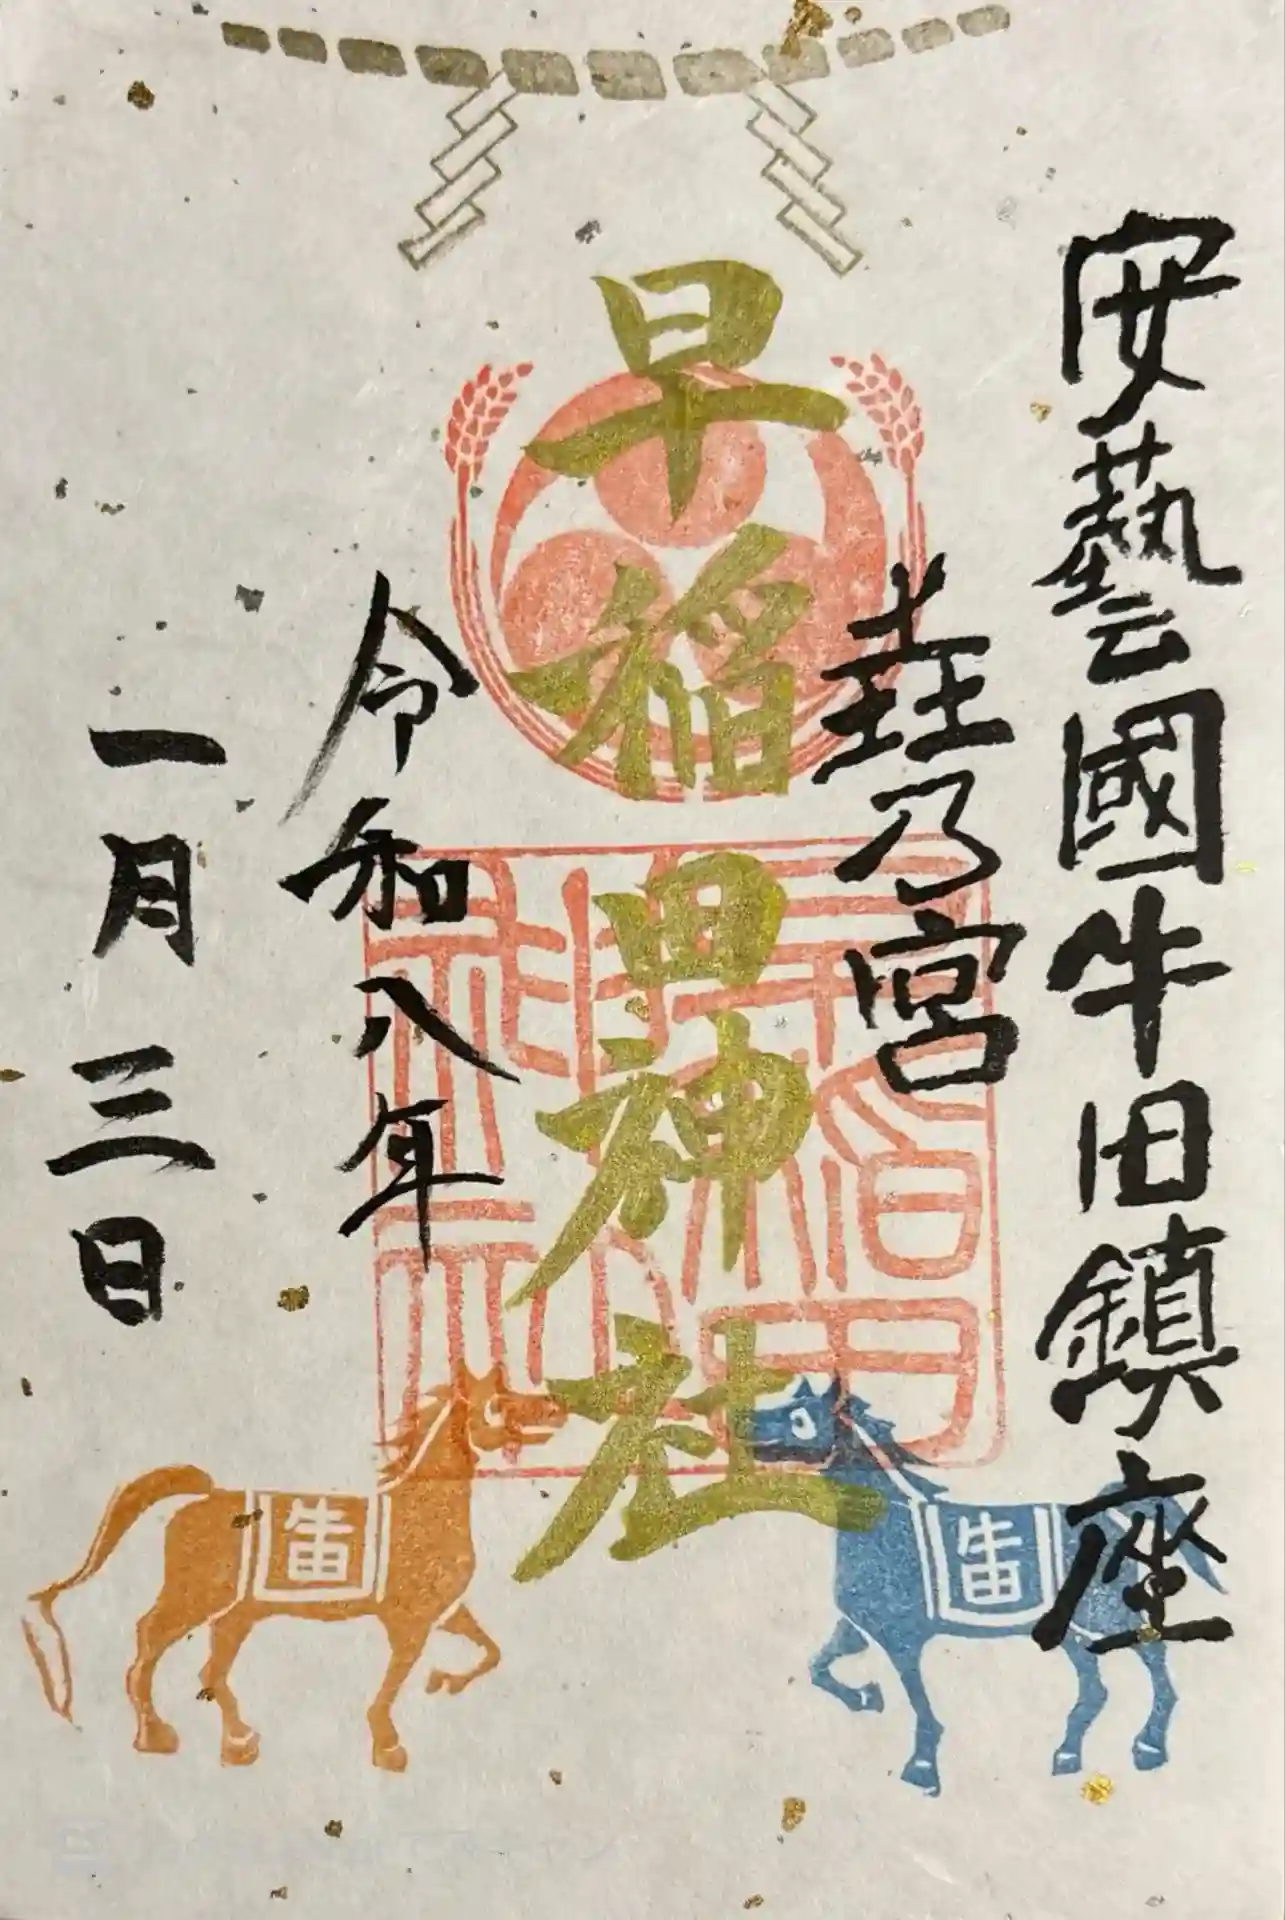 安藝國牛田鎮座
乃宮
早稲田神社
令和八年
一月三日
早稲田
神社
牛田
牛田